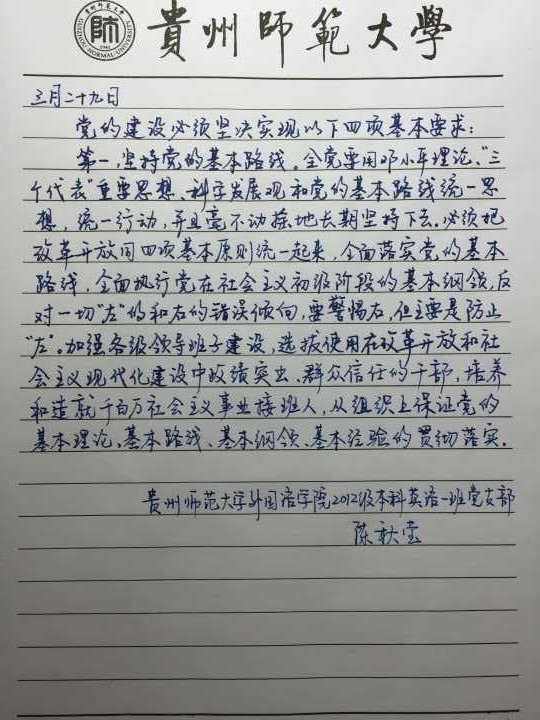 貴州師範大學
貴州師範大學
GUIZHOU NORMAL UNIVERSITY
師
1941
三月二十九日
党的建设必须坚决实现以下四项基本要求:
第一,坚持党的基本路线。全党要用邓小平理论、"三
个代表"重要思想、科学发展观和党的基本路线统一思
想,统一行动,并且毫不动摇地长期坚持下去。必须把
改革开放同四项基本原则统一起来,全面落实党的基本
路线,全面执行党在社会主义初级阶段的基本纲领,反
对一切"左"的和右的错误倾向,要警惕右,但主要是防止
"左"。加强各级领导班子建设,选拔使用在改革开放和社
会主义现代化建设中政绩突出、群众信任的干部,培养
和造就千百万社会主义事业接班人,从组织上保证党的
基本理论、基本路线、基本纲领、基本经验的贯彻落实。
贵州师范大学外国语学院2012级本科英语一班党支部
陈秋莹